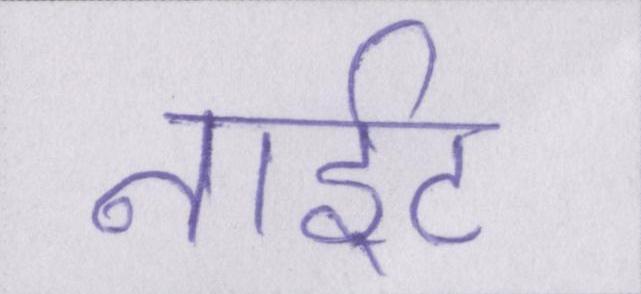 नाईट